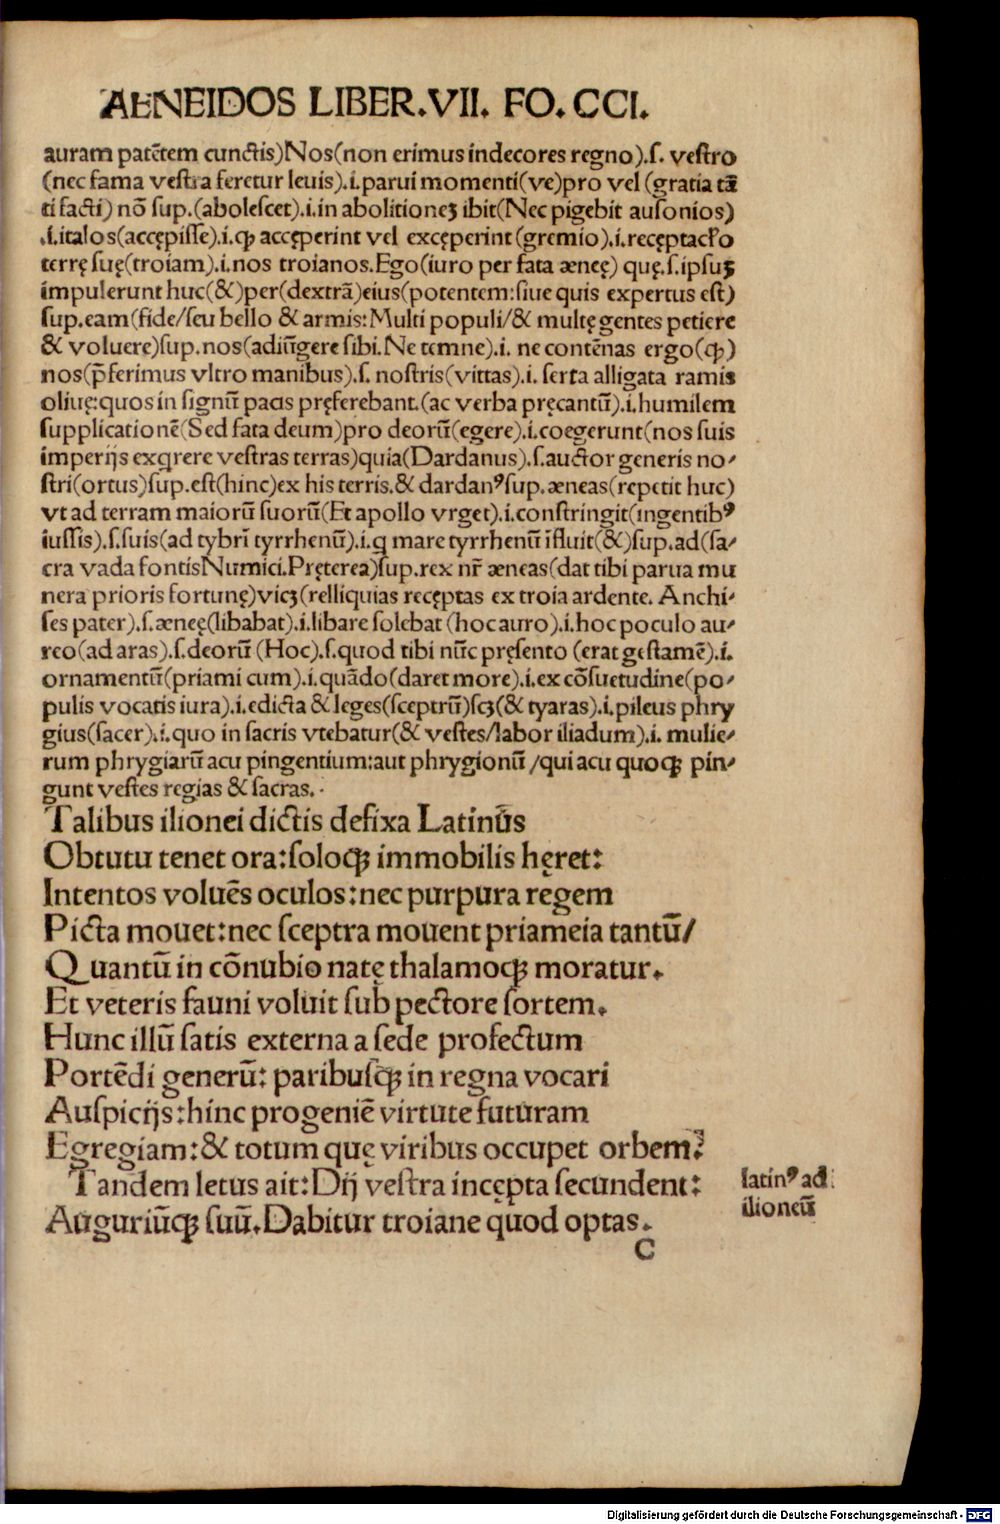 AENEIDOS LIBER.VII. FO.CCI.
auram patētem cunctis)Nos(non erimus indecores regno).ſ. veſtro
(nec fama veſtra feretur leuis).i.parui momenti(ve)pro vel (gratia tā
ti facti) nō ſup.(aboleſcet).i.in abolitioneꝫ ibit(Nec pigebit auſonios)
.i.italos(accępiſſe).i.ꝙ accęperint vel excęperint(gremio).i.recęptacƚo
terrę ſuę(troiam).i.nos troianos.Ego(iuro per fata æneę) quę.ſ.ipſuꝫ
impulerunt huc(&)per(dextrā)eius(potentem:ſiue quis expertus eſt)
ſup.eam(fide/ſeu bello & armis:Multi populi/& multę gentes petiere
& voluere)ſup.nos(adiūgere ſibi.Ne temne).i. ne contēnas ergo(ꝙ)
nos(p̄ferimus vltro manibus).ſ. noſtris(vittas).i. ſerta alligata ramis
oliuę:quos in ſignū pacis pręferebant.(ac verba pręcantū).i.humilem
ſupplicationē(Sed fata deum)pro deorū(egere).i.coegerunt(nos ſuis
imperijs exqrere veſtras terras)quia(Dardanus).ſ.auctor generis no-
ſtri(ortus)ſup.eſt(hinc)ex his terris.& dardanꝰſup.æneas(repetit huc)
vt ad terram maiorū ſuorū(Et apollo vrget).i.conſtringit(ingentibꝰ
iuſſis).ſ.ſuis(ad tybrī tyrrhenū).i.q mare tyrrhenū īfluit(&)ſup.ad(ſa-
cra vada fontisNumici.Pręterea)ſup.rex nr̄ æneas(dat tibi parua mu
nera prioris fortunę)vicꝫ(relliquias recęptas ex troia ardente. Anchi-
ſes pater).ſ.æneę(libabat).i.libare ſolebat (hoc auro).i.hoc poculo au-
reo(ad aras).ſ.deorū (Hoc).ſ.quod tibi nūc pręſento (erat geſtamē).i.
ornamentū(priami cum).i.quādo(daret more).i.ex cōſuetudine(po-
pulis vocatis iura).i.edicta & leges(ſceptrū)ſcꝫ(& tyaras).i.pileus phry
gius(ſacer).i.quo in ſacris vtebatur(& veſtes/labor iliadum).i. mulie-
rum phrygiarū acu pingentium:aut phrygionū /qui acu quoqꝫ pin-
gunt veſtes regias & ſacras.
Talibus ilionei dictis defixa Latinūs
Obtutu tenet ora:ſoloqꝫ immobilis hęret:
Intentos voluēs oculos:nec purpura regem
Picta mouet:nec ſceptra mouent priameia tantū/
Quantū in cōnubio natę thalamoqꝫ moratur.
Et veteris fauni voluit ſub pectore ſortem.
Hunc illū ſatis externa a ſede profectum
Portēdi generū: paribuſqꝫ in regna vocari
Auſpicijs:hinc progeniē virtute futuram
Egregiam:& totum quę viribus occupet orbem?
Tandem letus ait:Dij veſtra incępta ſecundent:
Auguriūqꝫ ſuū.Dabitur troiane quod optas.
latinꝰ ad
ilioneū
C
Digitalisierung gefördert durch die Deutsche Forschungsgemeinschaft - DFG